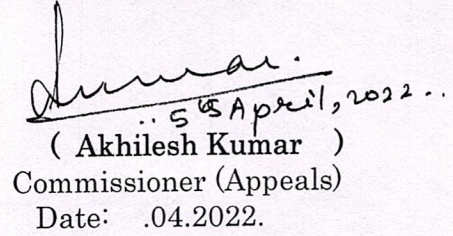 5th April, 2022..
( Akhilesh Kumar )
Commissioner (Appeals)
Date: .04.2022.